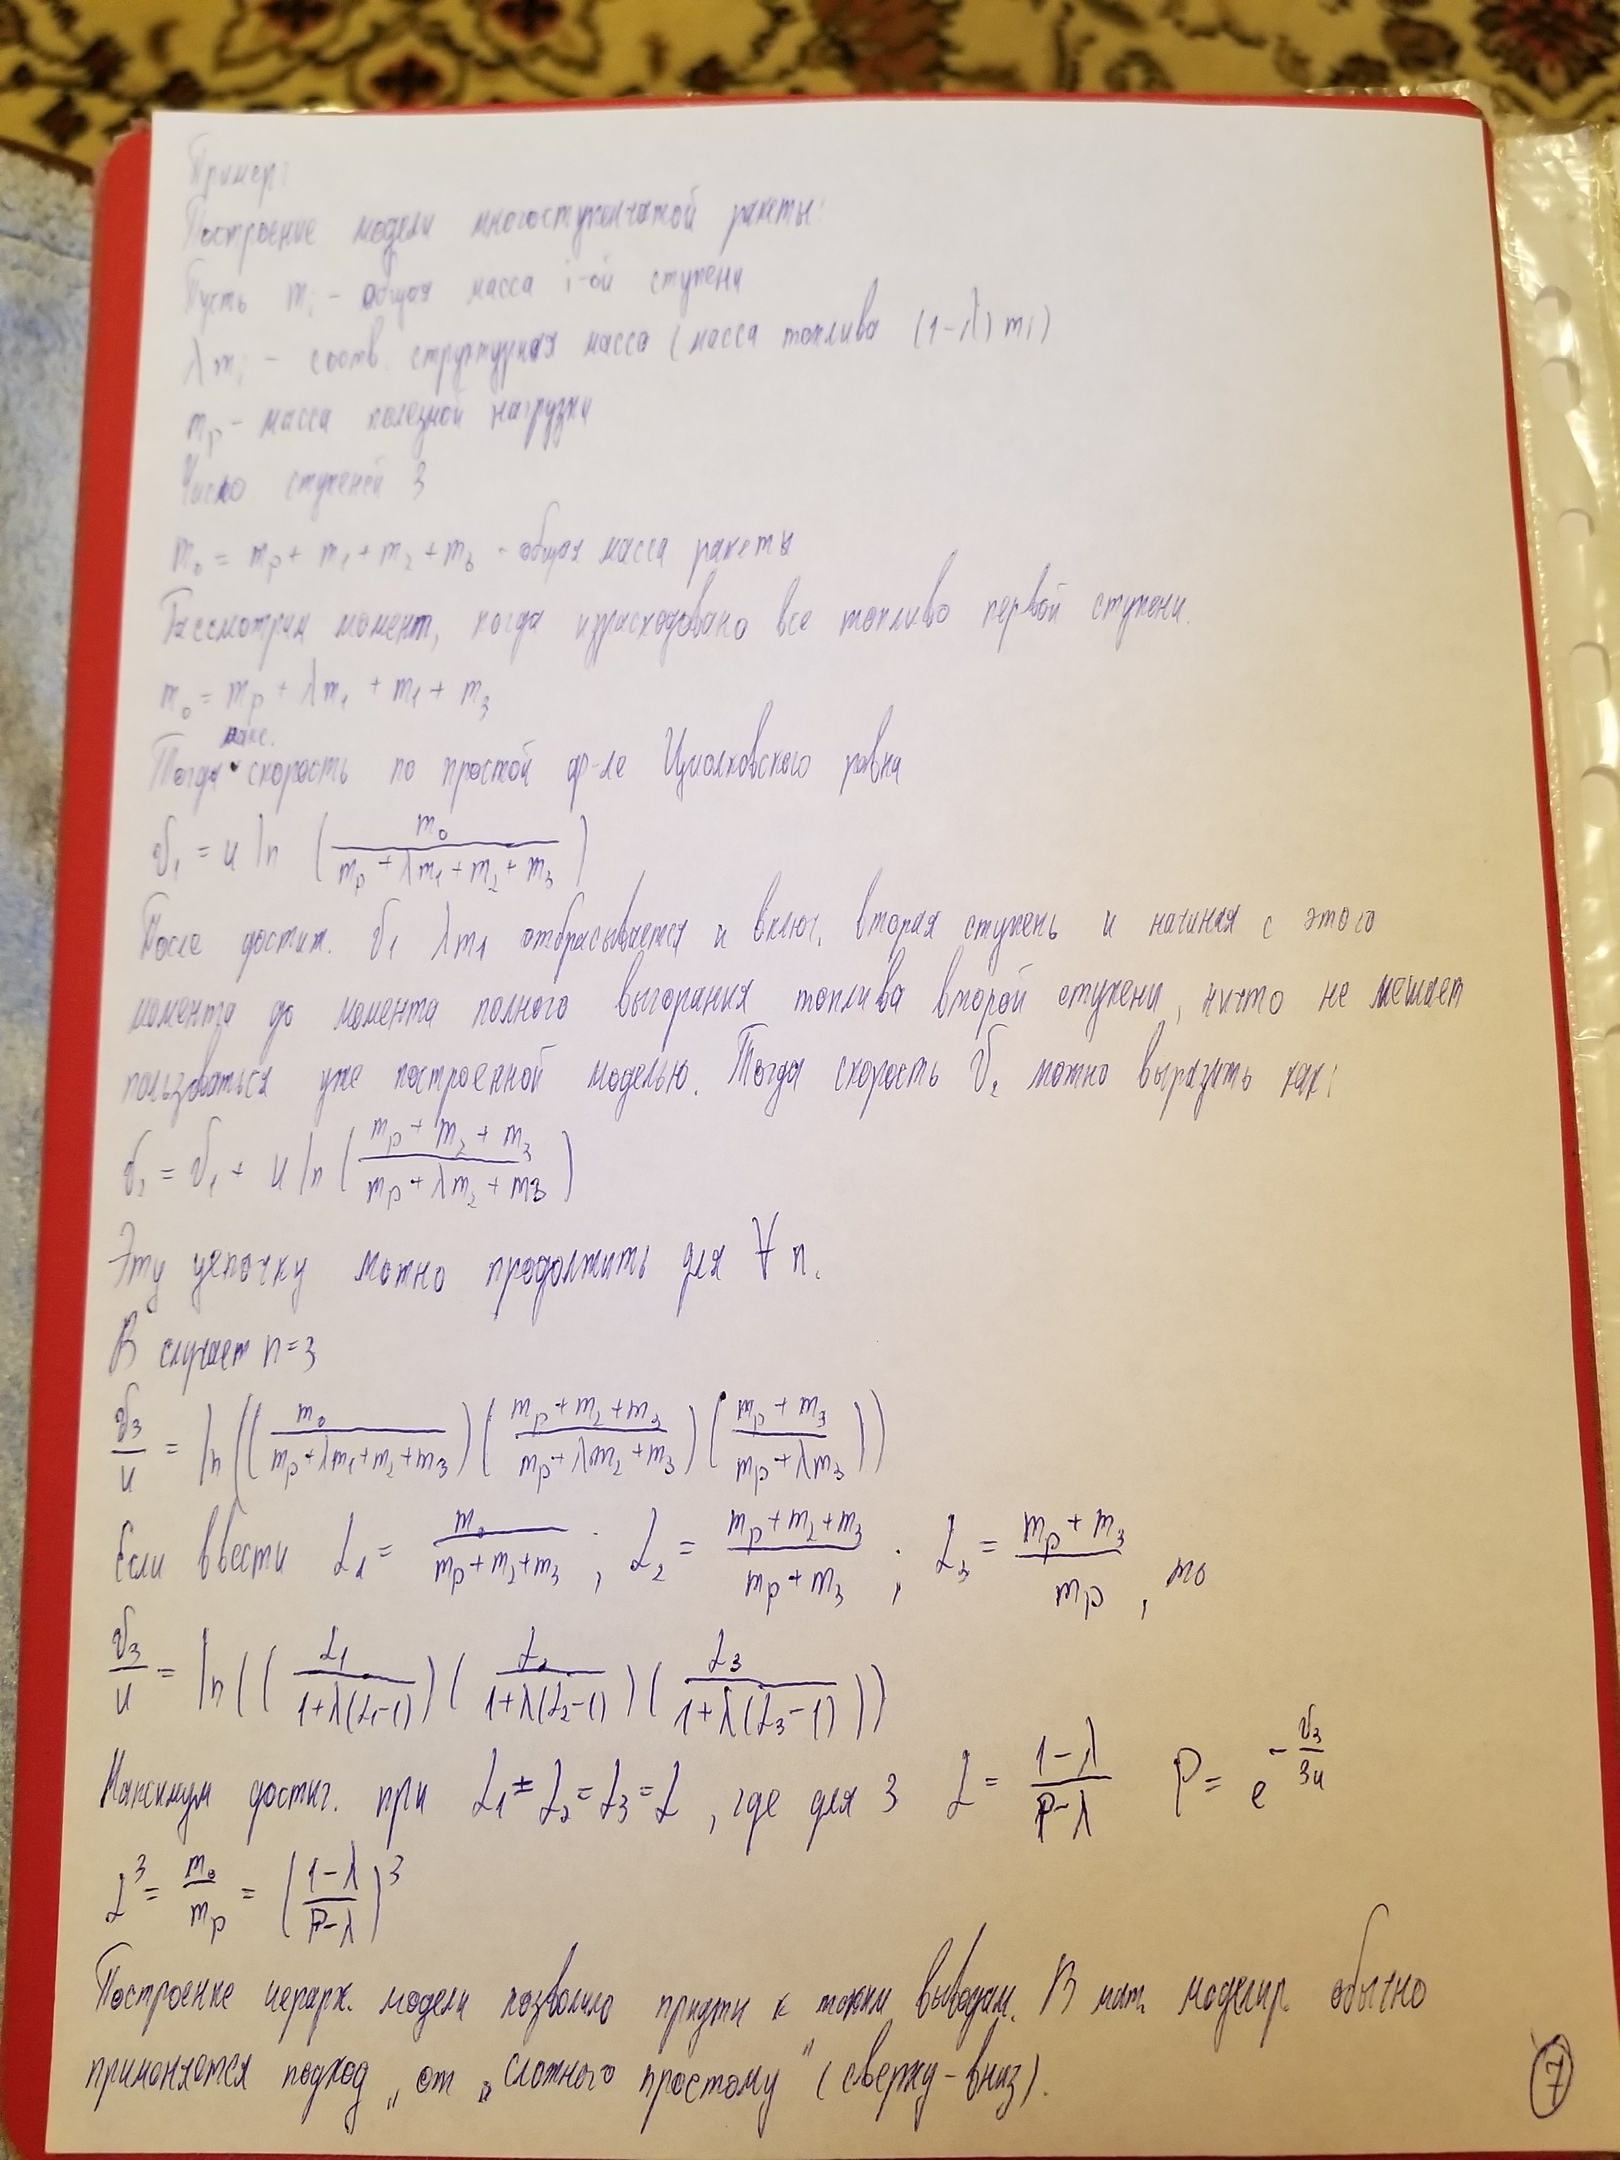 Пример:
Построение модели многоступенчатой ракеты:
Пусть mᵢ - общая масса i-ой ступени
λmᵢ - соотв. структурная масса (масса топлива (1-λ)mᵢ)
mₚ - масса полезной нагрузки
Число ступеней 3
m₀ = mₚ + m₁ + m₂ + m₃ - общая масса ракеты
Рассмотрим момент, когда израсходовано все топливо первой ступени.
m₀ = mₚ + λm₁ + m₁ + m₃
Тогда макс. скорость по простой ф-ле Циолковского равна
v₁ = u ln (m₀ / (mₚ + λm₁ + m₂ + m₃))
После достиж. v₁ λm₁ отбрасывается и включ. вторая ступень и начиная с этого
момента до момента полного выгорания топлива второй ступени, ничто не мешает
пользоваться уже построенной моделью. Тогда скорость v₂ можно выразить как:
v₂ = v₁ + u ln ((mₚ + m₂ + m₃) / (mₚ + λm₂ + m₃))
Эту цепочку можно продолжить для ∀ n.
В случает n=3
v₃/u = ln((m₀ / (mₚ+λm₁+m₂+m₃)) ((mₚ+m₂+m₃) / (mₚ+λm₂+m₃)) ((mₚ+m₃) / (mₚ+λm₃)))
Если ввести α₁ = m₀ / (mₚ+m₂+m₃); α₂ = (mₚ+m₂+m₃) / (mₚ+m₃); α₃ = (mₚ+m₃) / mₚ, то
v₃/u = ln((α₁ / (1+λ(α₁-1))) (α₂ / (1+λ(α₂-1))) (α₃ / (1+λ(α₃-1))))
Максимум достиг. при α₁ = α₂ = α₃ = α, где для 3 α = (1-λ) / (P-λ) P = e^(-v₃/3u)
α³ = m₀/mₚ = ((1-λ) / (P-λ))³
Построение иерарх. модели позволило придти к таким выводам. В мат. моделир. обычно
применяется подход „от „сложного простому" (сверху-вниз).
7